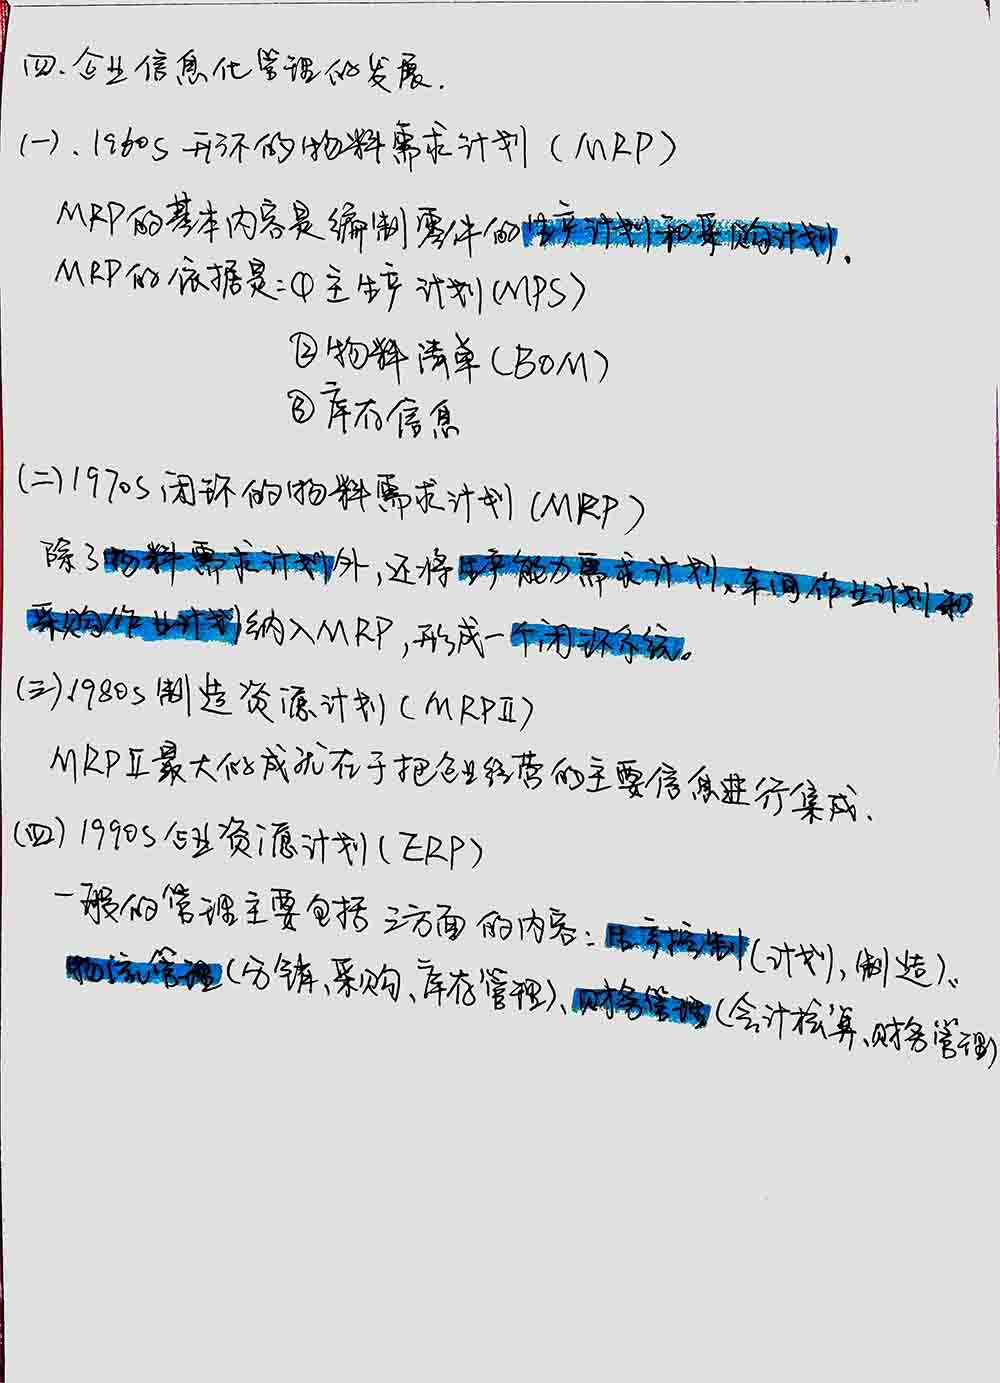 四、企业信息化管理的发展.
(一)、1960s 开环的物料需求计划(MRP)
MRP的基本内容是编制零件的生产计划和采购计划.
MRP的依据是:①主生产计划(MPS)
②物料清单(BOM)
③库存信息
(二)1970s闭环的物料需求计划(MRP)
除了物料需求计划外,还将生产能力需求计划、车间作业计划和
采购作业计划纳入MRP,形成一个闭环系统。
(三)、1980s制造资源计划(MRPⅡ)
MRPⅡ最大的成就在于把企业经营的主要信息进行集成.
(四)1990s企业资源计划(ERP)
一般的管理主要包括三方面的内容:生产控制(计划、制造)、
物流管理(分销、采购、库存管理)、财务管理(会计核算、财务管理)